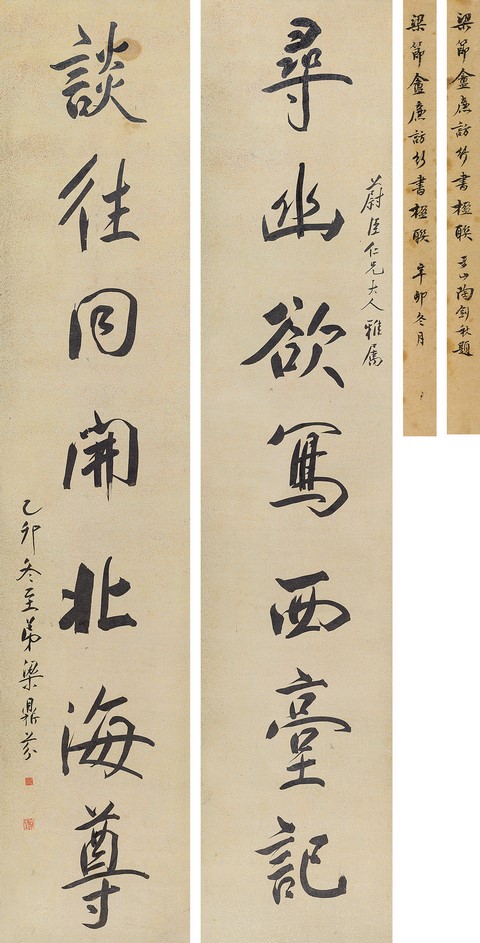 梁節盦廉訪行書楹聯 山陶劍秋題
梁節盦廉訪行書楹聯 辛卯冬月
蔚臣仁兄大人雅屬
尋幽欲寫西臺記
談往同開北海尊
乙卯冬至弟梁鼎芬